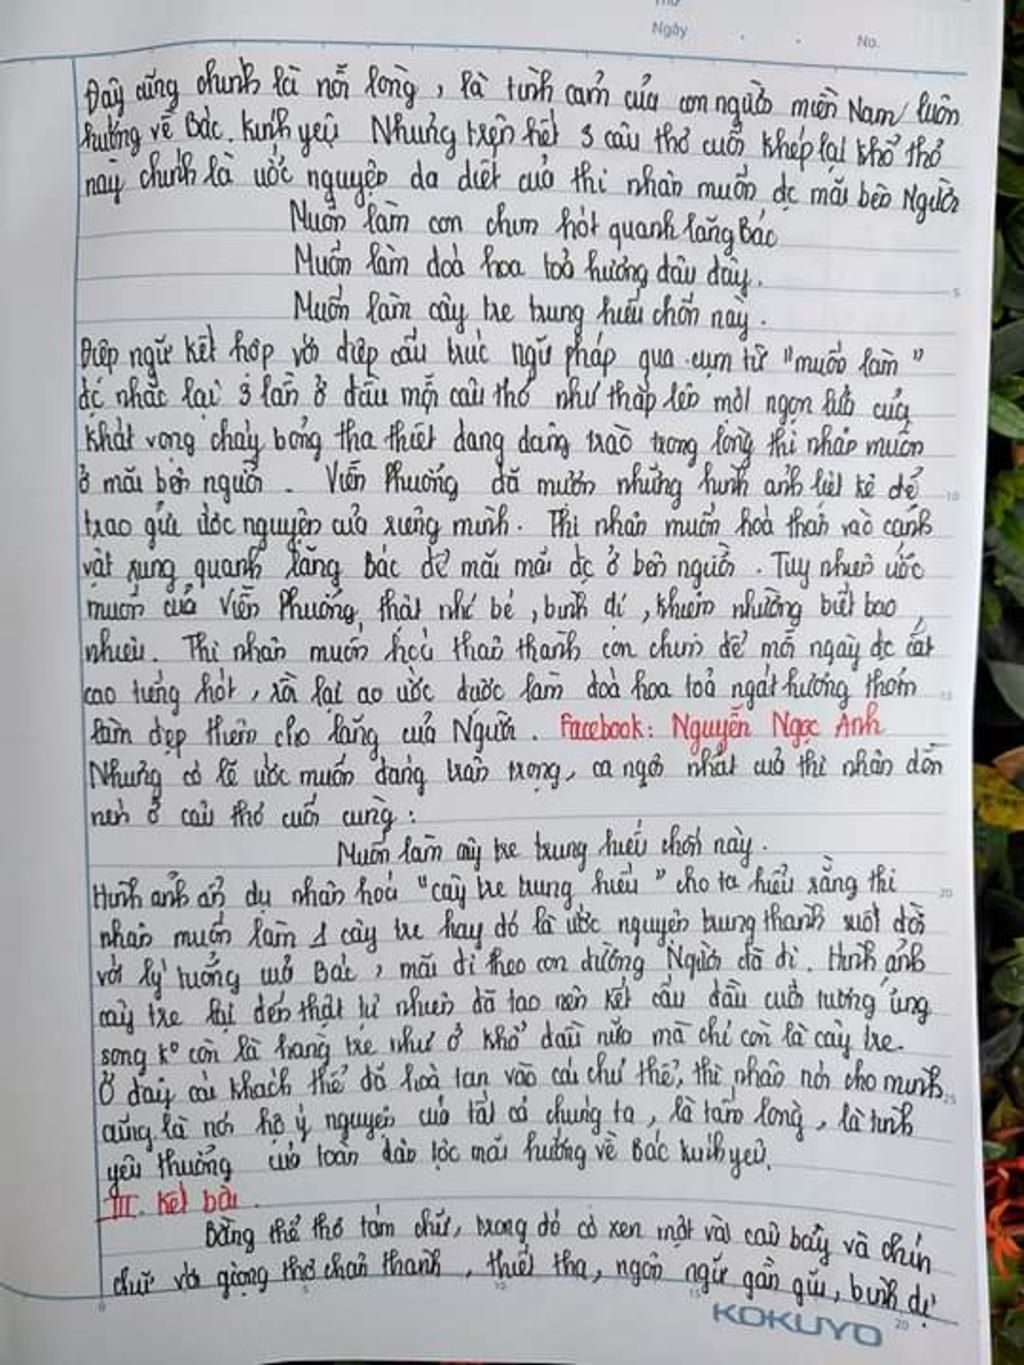 Thứ
Ngày . . No.
Đây cũng chính là nỗi lòng, là tình cảm của con người miền Nam luôn
hướng về Bác kính yêu Nhưng trên hết 3 câu thơ cuối khép lại khổ thơ
này chính là ước nguyện da diết của thi nhân muốn đc mãi bên Người
Muốn làm con chim hót quanh lăng Bác
Muốn làm đoá hoa toả hương đâu đây.
Muốn làm cây tre trung hiếu chốn này.
Điệp ngữ kết hợp với điệp cấu trúc ngữ pháp qua cụm từ "muốn làm"
đc nhắc lại 3 lần ở đầu mỗi câu thơ như thắp lên một ngọn lửa của
khát vọng cháy bỏng tha thiết đang dâng trào trong lòng thi nhân muốn
ở mãi bên người. Viễn Phương đã mượn những hình ảnh liệt kê để
trao gửi ước nguyện của riêng mình. Thi nhân muốn hoá thân vào cảnh
vật xung quanh lăng Bác để mãi mãi đc ở bên người. Tuy nhiên ước
muốn của Viễn Phương thật nhỏ bé, bình dị, khiêm nhường biết bao
nhiêu. Thi nhân muốn hoá thân thành con chim để mỗi ngày đc cất
cao tiếng hót, rồi lại ao ước được làm đoá hoa toả ngát hương thơm
làm đẹp thêm cho lăng của Người. Facebook: Nguyễn Ngọc Anh
Nhưng có lẽ ước muốn đáng trân trọng, ca ngợi nhất của thi nhân dồn
nén ở câu thơ cuối cùng:
Muốn làm cây tre trung hiếu chốn này.
Hình ảnh ẩn dụ nhân hoá "cây tre trung hiếu" cho ta hiểu rằng thi
nhân muốn làm 1 cây tre hay đó là ước nguyện trung thành suốt đời
với lý tưởng của Bác, mãi đi theo con đường Người đã đi. Hình ảnh
cây tre lại đến thật tự nhiên đã tạo nên kết cấu đầu cuối tương ứng
song k° còn là hàng tre như ở khổ đầu nữa mà chỉ còn là cây tre.
Ở đây cái khách thể đã hoà tan vào cái chủ thể, thi nhân nói cho mình
cũng là nói hộ ý nguyện của tất cả chúng ta, là tấm lòng, là tình
yêu thương của toàn dân tộc mãi hướng về Bác kính yêu.
III. Kết bài.
Bằng thể thơ tám chữ, trong đó có xen một vài câu bảy và chín
chữ với giọng thơ chân thành, thiết tha, ngôn ngữ gần gũi, bình dị
KOKUYO